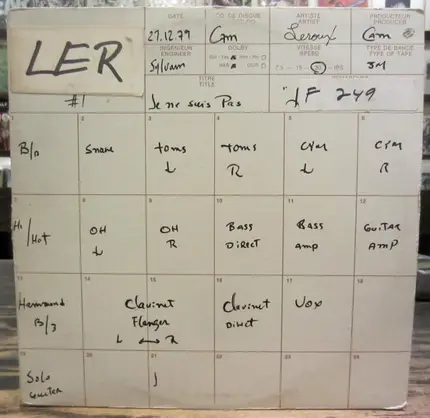 LER
#1
DATE
27.12.79
Cam
ARTISTE
ARTIST
Leroux
PRODUCTEUR
PRODUCER
Cam
INGENIEUR
ENGINEER
Sylvain
DOLBY
VITESSE
SPEED
30
TYPE DE BANDE
TYPE OF TAPE
3M
TITRE
TITLE
Je ne suis Pas
JF 249
B/D
2
snare
3
toms
L
4
toms
R
5
cym
L
6
cym
R
7
Hi
/Hat
8
OH
L
9
OH
R
10
BASS
DIRECT
11
BASS
amp
12
GUITAR
AMP
13
Hammond
B/3
14
15
Clavinet
Flanger
L ↔ R
16
Clavinet
Direct
17
VOX
18
19
Solo
Guitar
20
21
22
23
24